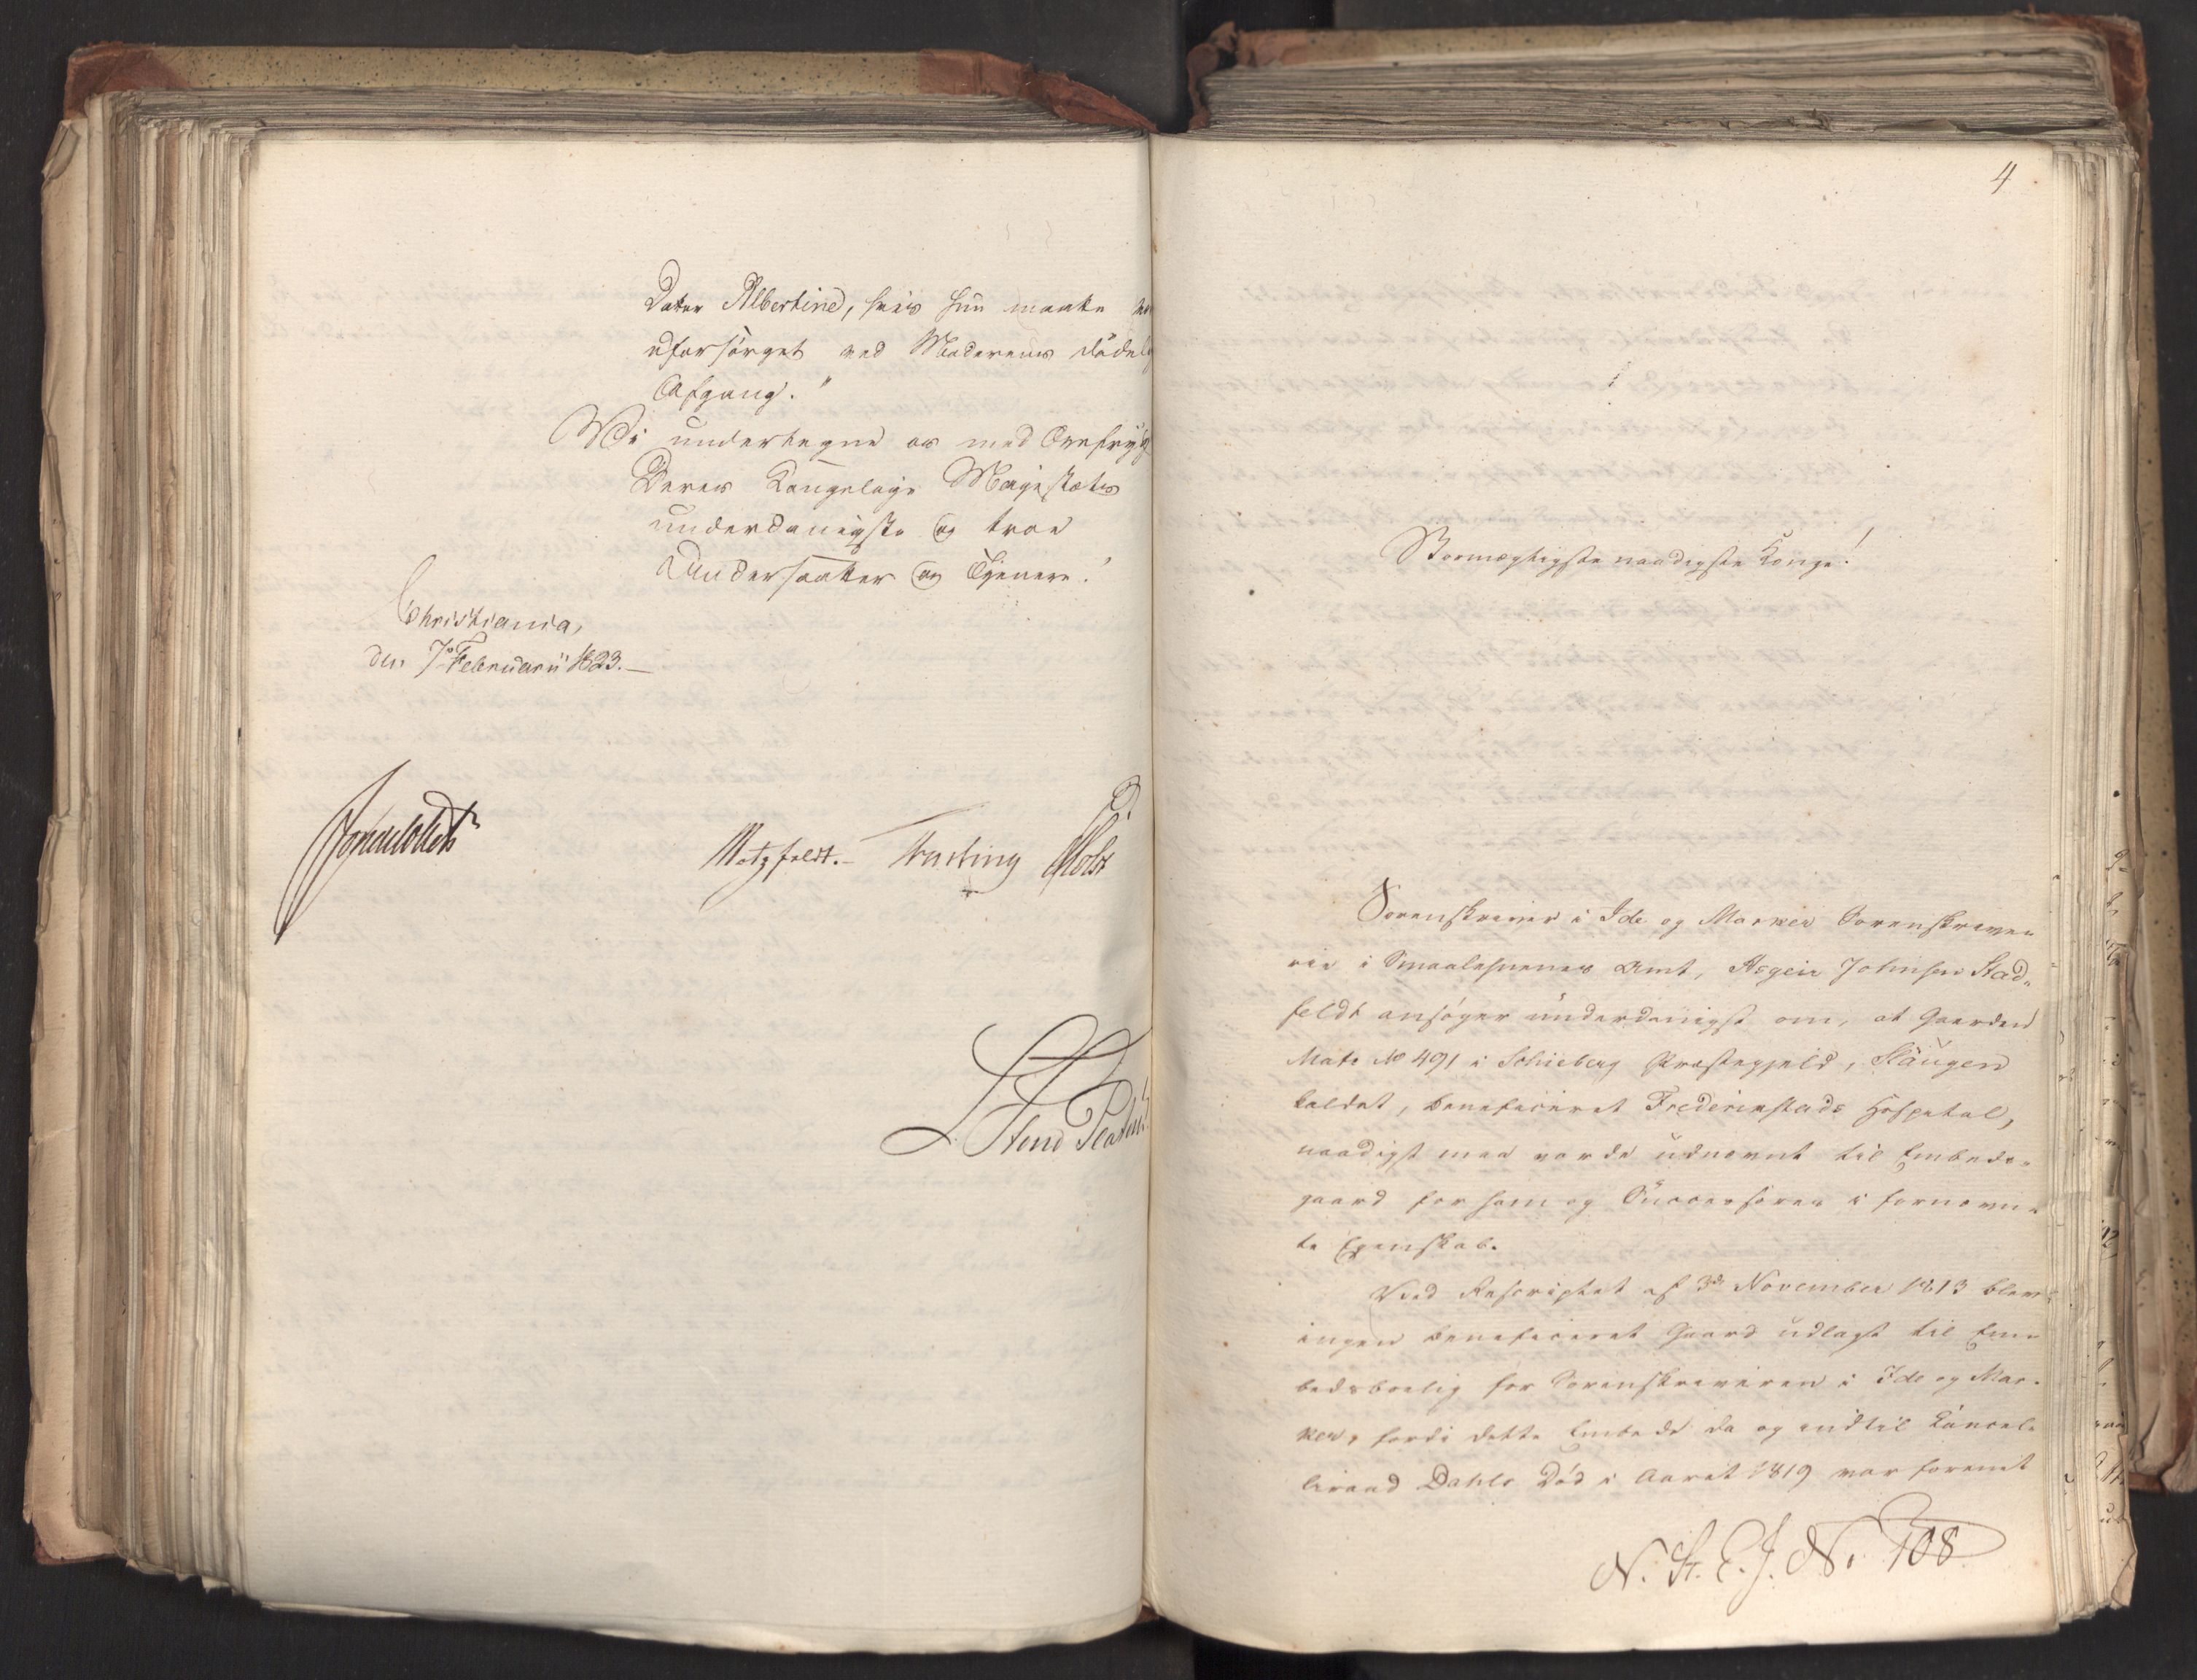 Datter Albertine, hvis hun maatte være
uforsørget ved Moderens dødelige
Afgang."
Vi undertegne os med Ærefrygt
Deres Kongelige Majestæts
underdanigste og troe
Undersaatter og Tjenere!
Christiania,
den 7de Februarii 1823.
Jonas Collett
Motzfeldt. Treschow Holst
4
Stormægtigste naadigste Konge!
Sorenskriver i Ide og Markers Sorenskrive-
rie i Smaalehnenes Amt, Asgeir Johnsen Stad-
feldt ansøger underdanigst om, at Gaarden
Matr. No 491 i Schieberg Præstegjeld, Skaugen
kaldet, beneficeret Frederikstads Hospital,
naadigst maa vorde udnævnt til Embeds-
gaard for ham og Successorer i fornævn-
te Egenskab.
Ved Rescriptet af 3de November 1813 blev
ingen beneficeret Gaard udlagt til Em-
bedsboelig for Sorenskriveren i Ide og Mar-
ker, fordi dette Embede da og indtil Cancel-
liraad Dahls Død i Aaret 1819 var forenet
N. St. E. J. No 708